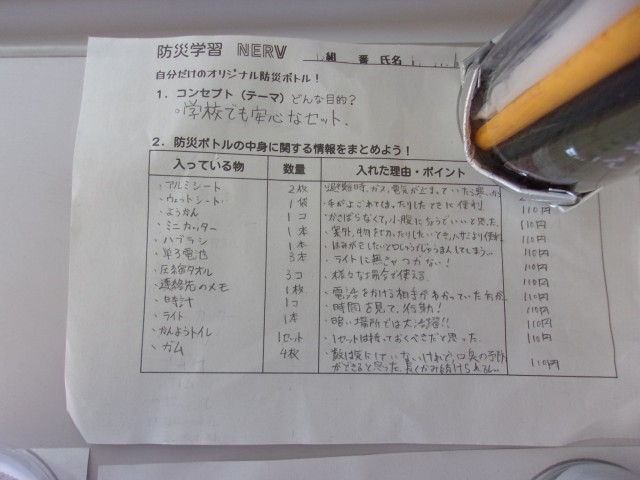 防災学習 NERV 組 番 氏名
自分だけのオリジナル防災ボトル！
1. コンセプト（テーマ）どんな目的？
。学校でも安心なセット.
2. 防災ボトルの中身に関する情報をまとめよう！
入っている物 数量 入れた理由・ポイント
・アルミシート 2枚 ガス、電気が止まって
・ウェットシート 1袋 ・手がよごれては、たりしたときに便利 110円
・ようかん 1コ ・かさばらなくて、小腹になうどいいと思った. 110円
・ミニカッター 1本 110円
・ハブラシ 1本 110円
・単3電池 3本 ・ライトに無きゃつかない！ 110円
・圧縮タオル 3コ ・様々な場合で使える 110円
・連絡先のメモ 1枚 ・電話をかける相手がわかっていれば 110円
・時計 1コ ・時間を見て、行動！ 110円
・ライト 1本 ・暗い場所では大活躍!! 110円
・かんいトイレ 1セット ・1セットは持っておくべきだと思った 110円
・ガム 4枚 口臭の予防ができると思った. 110円